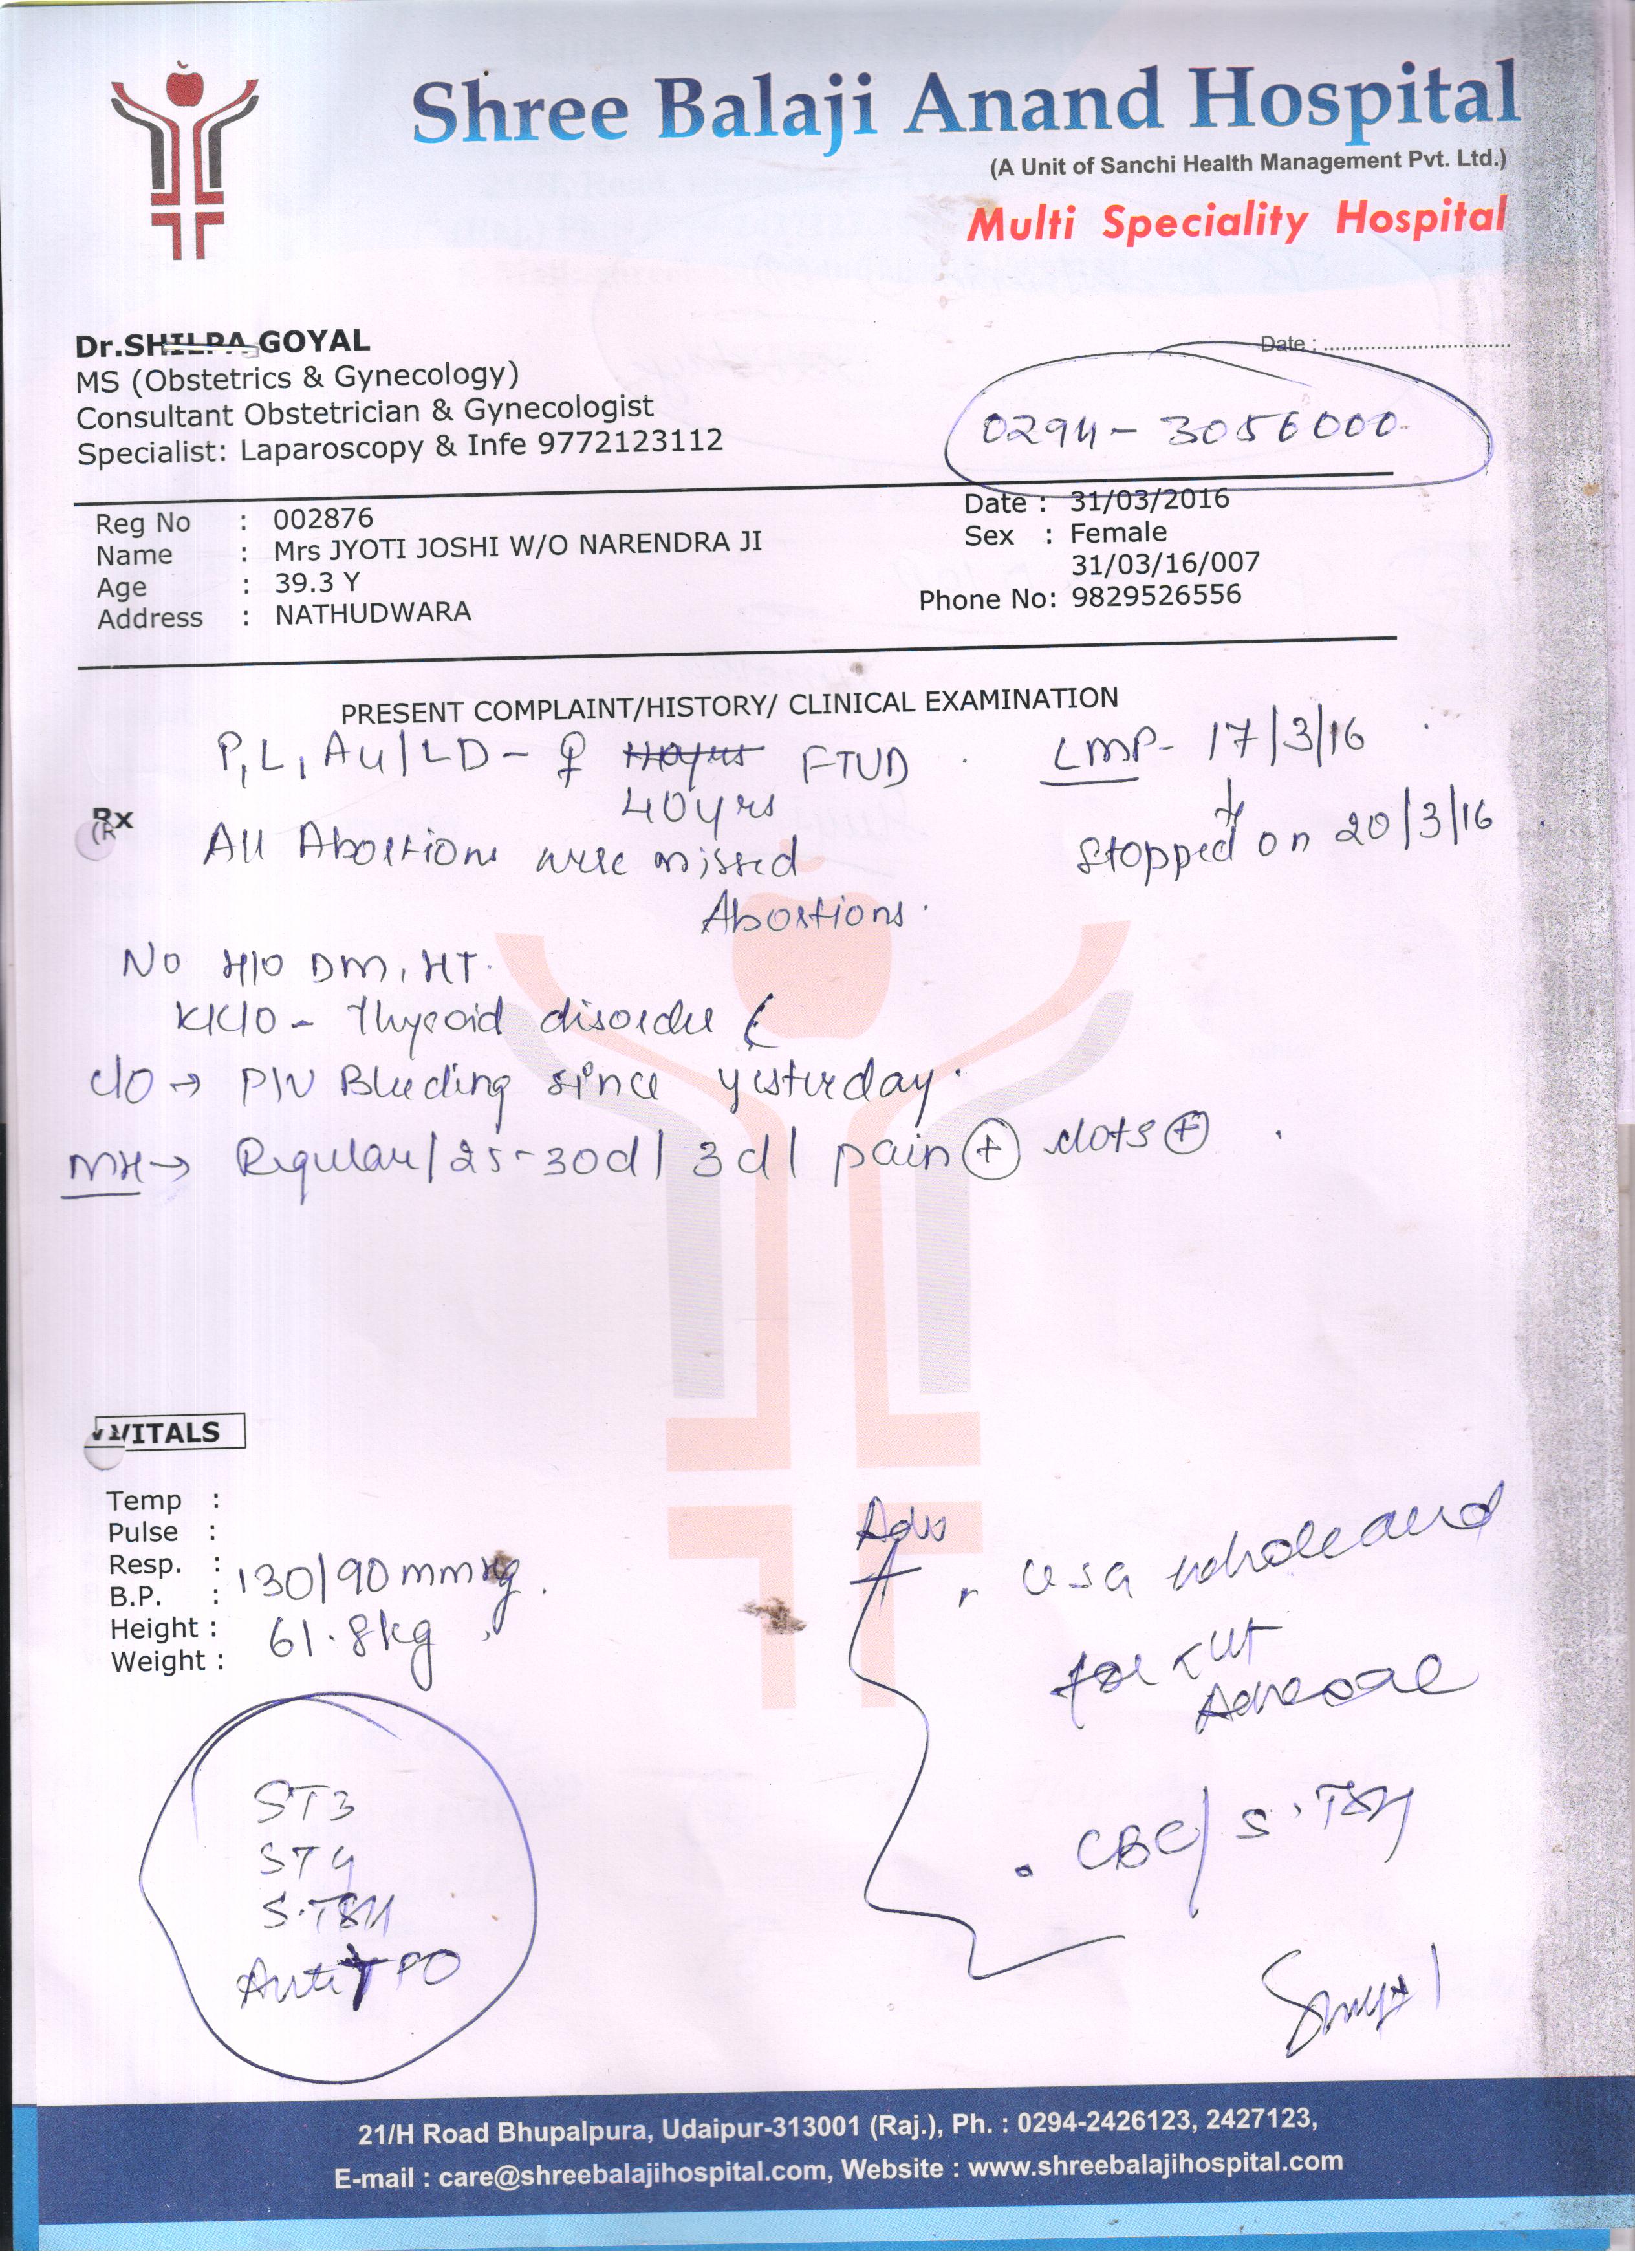 Shree Balaji Anand Hospital
(A Unit of Sanchi Health Management Pvt. Ltd.)
Multi Speciality Hospital
Dr.SHILPA GOYAL
MS (Obstetrics & Gynecology)
Consultant Obstetrician & Gynecologist
Specialist: Laparoscopy & Infe 9772123112
Date : ................................
0294-3056000
Reg No : 002876
Name : Mrs JYOTI JOSHI W/O NARENDRA JI
Age : 39.3 Y
Address : NATHUDWARA
Date : 31/03/2016
Sex : Female
31/03/16/007
Phone No: 9829526556
PRESENT COMPLAINT/HISTORY/ CLINICAL EXAMINATION
P1L1A4/LD- ♀ FTUD
40yrs
LMP- 17/3/16
Stopped on 20/3/16
Rx
(R
All Abortions were missed
Abortions.
No H/O DM, HT.
K/C/O - Thyroid disorder (
C/O → P/V Bleeding since yesterday.
MH → Regular/25-30d/3d/ pain ⊕ clots ⊕
VITALS
Temp :
Pulse :
Resp. :
B.P. : 130/90mmHg.
Height :
Weight : 61.8kg
Adv
USG whole abd
for
CBC/S.TSH
ST3
ST4
S.TSH
Anti TPO
21/H Road Bhupalpura, Udaipur-313001 (Raj.), Ph. : 0294-2426123, 2427123,
E-mail : care@shreebalajihospital.com, Website : www.shreebalajihospital.com